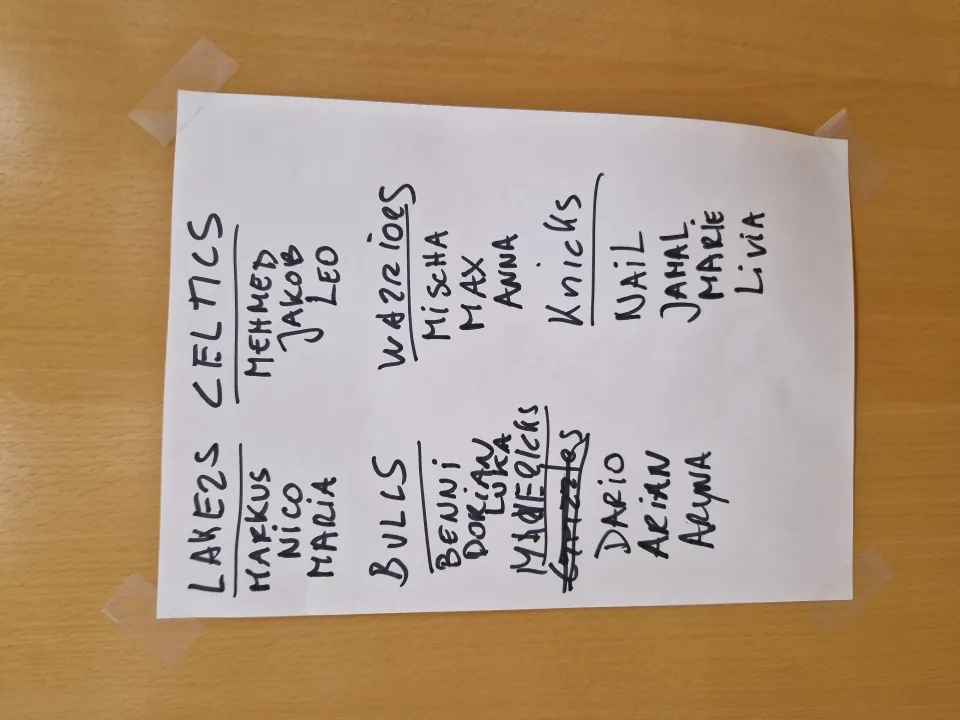 LAKERS
MARKUS
NICO
MARIA
CELTICS
MEHMED
JAKOB
LEO
BULLS
BENNI
DORIAN
LUKA
WARRIORS
MISCHA
MAX
ANNA
MAVERICKS
DARIO
ARIAN
ARYNA
Knicks
NAIL
JAMAL
MARIE
LiViA